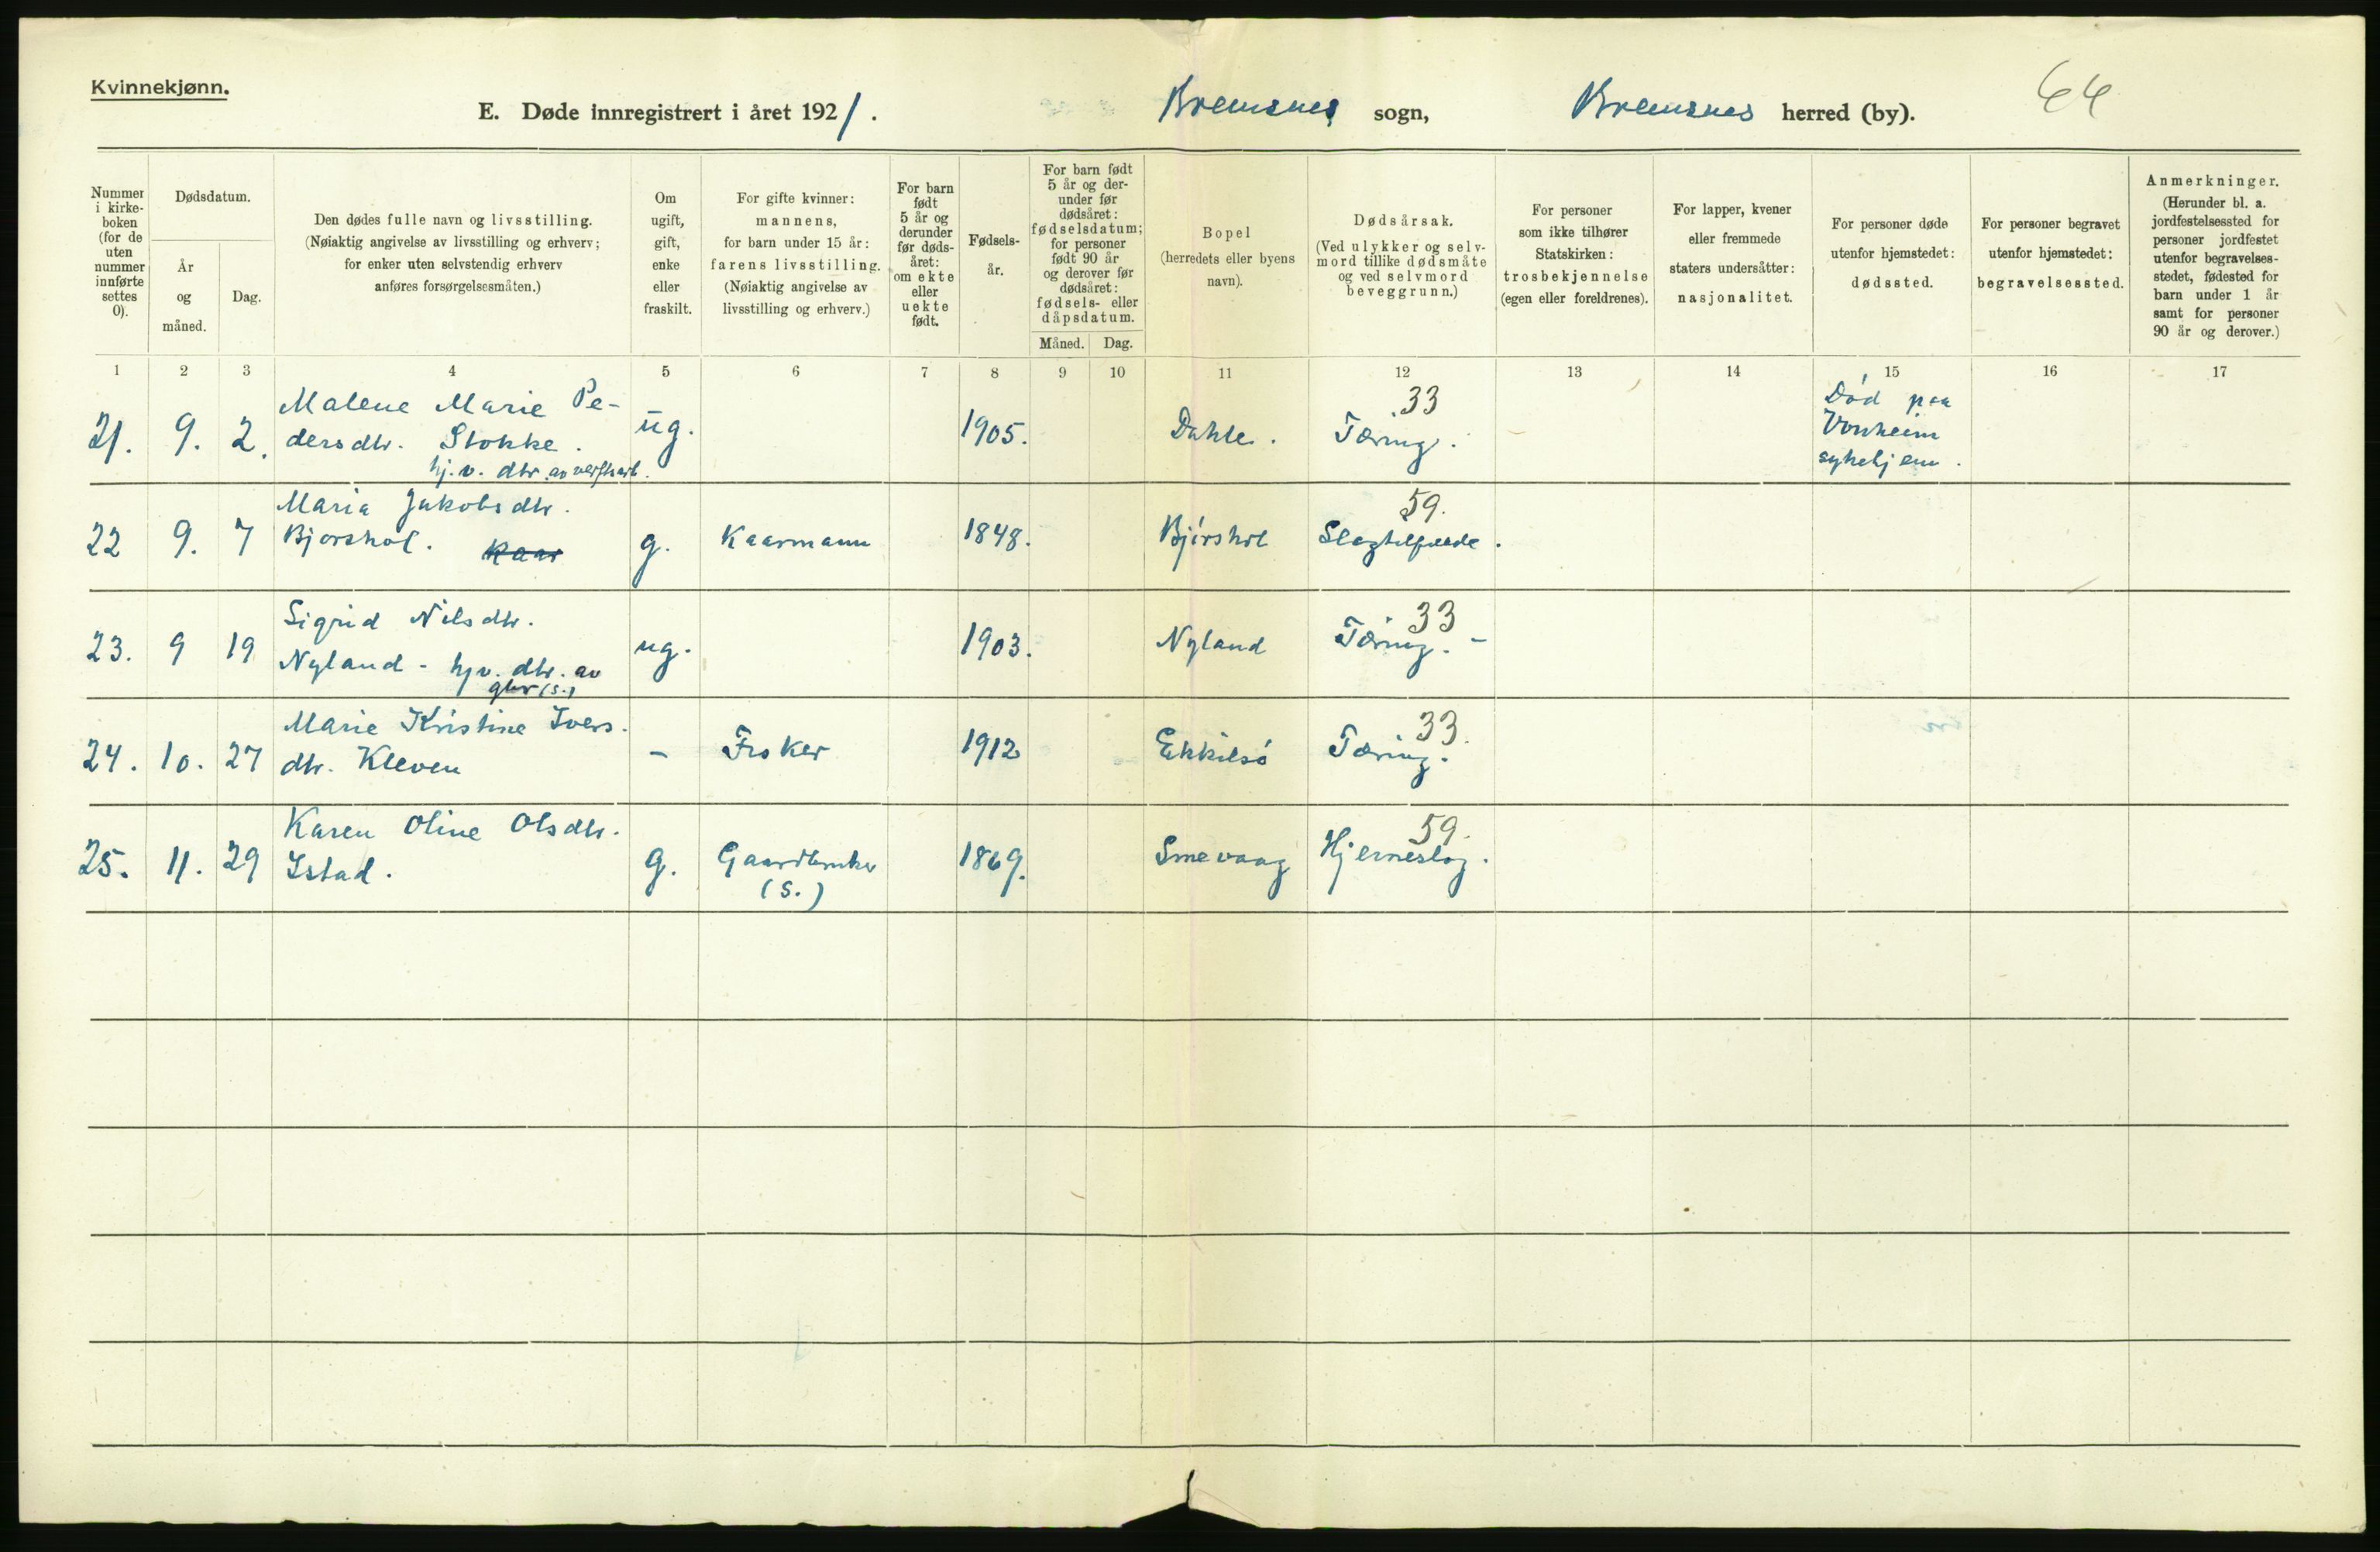 Kvinnekjønn.
E. Døde innregistrert i året 1921. Bremsnes sogn, Bremsnes herred (by). 64
Nummer
i kirke-
boken
(for de
uten
nummer
innførte
settes
0).
Dødsdatum.
År
og
måned.
Dag.
Den dødes fulle navn og livsstilling.
(Nøiaktig angivelse av livsstilling og erhverv;
for enker uten selvstendig erhverv
anføres forsørgelsesmåten.)
Om
ugift,
gift,
enke
eller
fraskilt.
For gifte kvinner:
mannens,
for barn under 15 år:
farens livsstilling.
(Nøiaktig angivelse av
livsstilling og erhverv.)
For barn
født
5 år og
derunder
før døds-
året:
om ekte
eller
uekte
født.
Fødsels-
år.
For barn født
5 år og der-
under før
dødsåret:
fødselsdatum;
for personer
født 90 år
og derover før
dødsåret:
fødsels- eller
dåpsdatum.
Måned. Dag.
Bopel
(herredets eller byens
navn).
Dødsårsak.
(Ved ulykker og selv-
mord tillike dødsmåte
og ved selvmord
beveggrunn.)
For personer
som ikke tilhører
Statskirken:
trosbekjennelse
(egen eller foreldrenes).
For lapper, kvener
eller fremmede
staters undersåtter:
nasjonalitet.
For personer døde
utenfor hjemstedet:
dødssted.
For personer begravet
utenfor hjemstedet:
begravelsessted.
Anmerkninger.
(Herunder bl. a.
jordfestelsessted for
personer jordfestet
utenfor begravelses-
stedet, fødested for
barn under 1 år
samt for personer
90 år og derover.)
1 2 3 4 5 6 7 8 9 10 11 12 13 14 15 16 17
21. 9. 2. Malene Marie Pe-
dersdtr. Stokke.
hj. v. dtr. av
ug. 1905. Dahle. 33
Tæring.
Død paa
Vonheim
sykehjem.
22 9. 7 Maria Jakobsdtr.
Bjorshol. Kaar
g. Kaarmann 1848. Bjórshol 59.
Slagtilfælde.
23. 9 19 Sigrid Nilsdtr.
Nyland - hjv. dtr. av
gbr (s.)
ug. 1903. Nyland 33
Tæring. -
24. 10. 27 Marie Kristine Ivers.
dtr. Kleven
- Fisker 1912 Ekkilsó 33.
Tæring.
25. 11. 29 Karen Oline Olsdtr.
Istad.
g. Gaardbruker
(S.)
1869. Smevaag 59.
Hjerneslag.